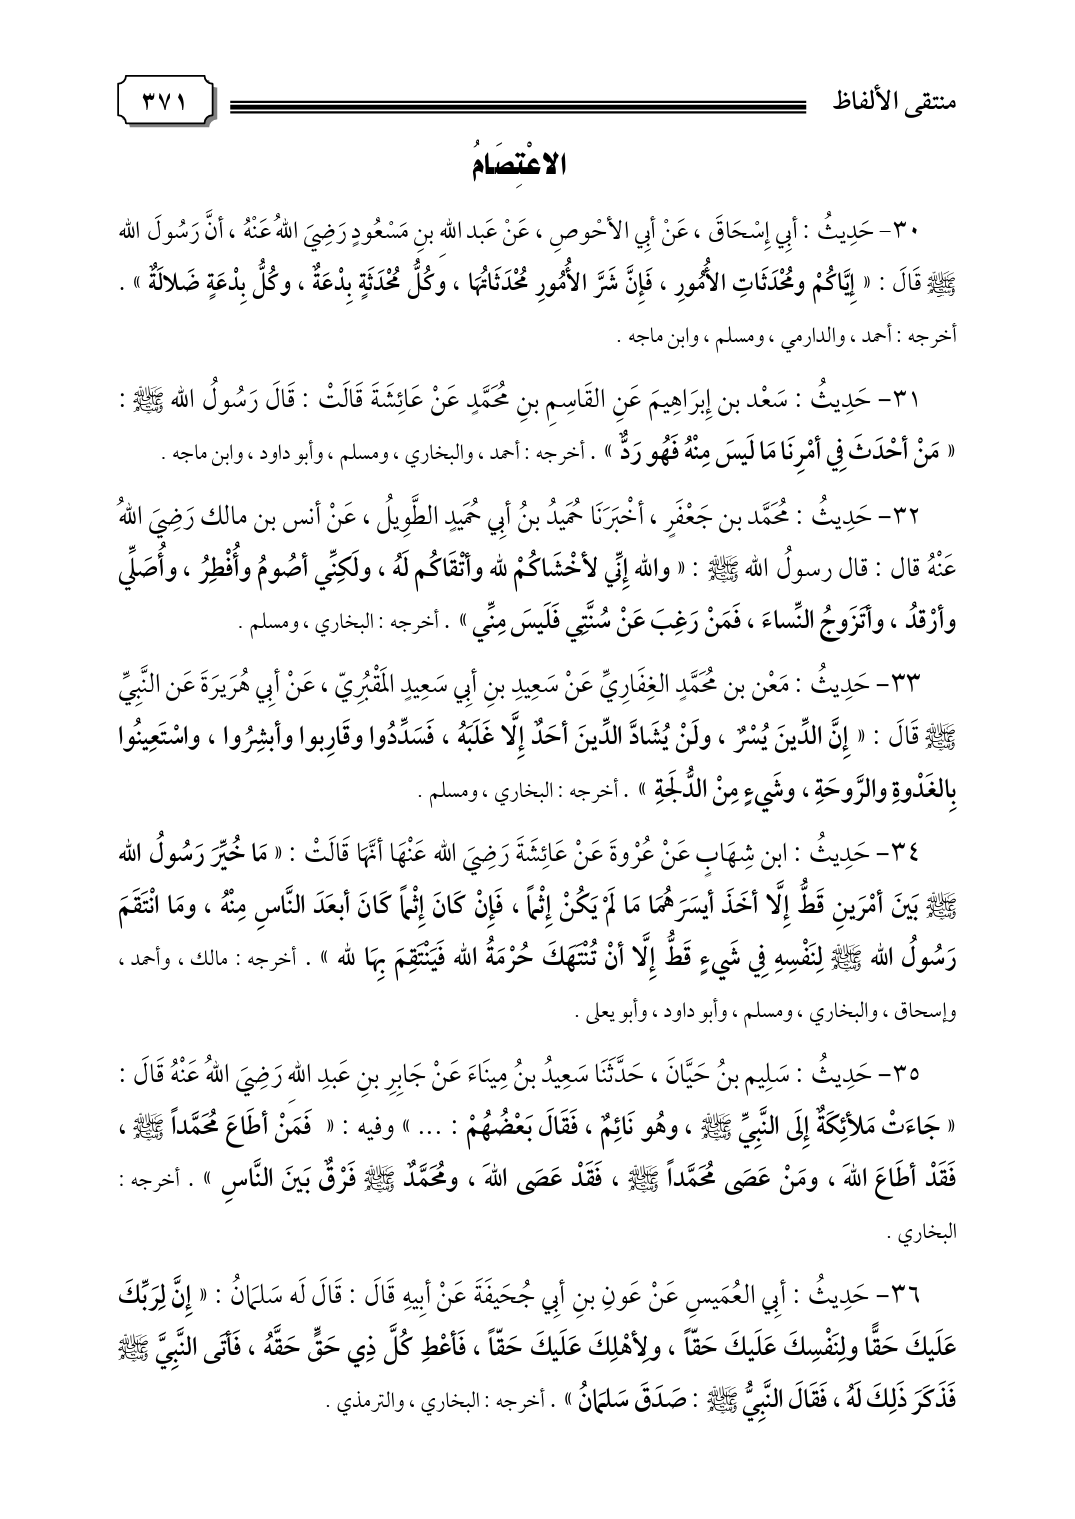 منتقى الألفاظ ٣٧١
الاعْتِصَامُ
٣٠- حَدِيثُ : أبِي إِسْحَاقَ ، عَنْ أبِي الأحْوصِ ، عَنْ عَبد اللهِ بنِ مَسْعُودٍ رَضِيَ اللهُ عَنْهُ ، أنَّ رَسُولَ الله
ﷺ قَالَ : « إِيَّاكُمْ ومُحْدَثَاتِ الأُمُورِ ، فَإِنَّ شَرَّ الأُمُورِ مُحْدَثَاتُهَا ، وكُلُّ مُحْدَثَةٍ بِدْعَةٌ ، وكُلُّ بِدْعَةٍ ضَلالَةٌ » .
أخرجه : أحمد ، والدارمي ، ومسلم ، وابن ماجه .
٣١- حَدِيثُ : سَعْد بن إِبرَاهِيمَ عَنِ القَاسِمِ بنِ مُحَمَّدٍ عَنْ عَائِشَةَ قَالَتْ : قَالَ رَسُولُ الله ﷺ :
« مَنْ أحْدَثَ فِي أمْرِنَا مَا لَيسَ مِنْهُ فَهُو رَدٌّ » . أخرجه : أحمد ، والبخاري ، ومسلم ، وأبو داود ، وابن ماجه .
٣٢- حَدِيثُ : مُحَمَّد بن جَعْفَرٍ ، أخْبَرَنَا حُمَيدُ بنُ أبِي حُمَيدٍ الطَّوِيلُ ، عَنْ أنس بن مالك رَضِيَ اللهُ
عَنْهُ قال : قال رسولُ الله ﷺ : « والله إِنِّي لأخْشَاكُمْ لله وأتْقَاكُم لَهُ ، ولَكِنِّي أصُومُ وأُفْطِرُ ، وأُصَلِّي
وأرْقدُ ، وأتَزَوجُ النِّساءَ ، فَمَنْ رَغِبَ عَنْ سُنَّتِي فَلَيسَ مِنِّي » . أخرجه : البخاري ، ومسلم .
٣٣- حَدِيثُ : مَعْن بن مُحَمَّدٍ الغِفَارِيِّ عَنْ سَعِيدِ بنِ أبِي سَعِيدٍ المَقْبُرِيّ ، عَنْ أبِي هُرَيرَةَ عَن النَّبِيِّ
ﷺ قَالَ : « إِنَّ الدِّينَ يُسْرٌ ، ولَنْ يُشَادَّ الدِّينَ أحَدٌ إِلَّا غَلَبَهُ ، فَسَدِّدُوا وقَارِبوا وأبشِرُوا ، واسْتَعِينُوا
بِالغَدْوةِ والرَّوحَةِ ، وشَيءٍ مِنْ الدُّلجَةِ » . أخرجه : البخاري ، ومسلم .
٣٤- حَدِيثُ : ابن شِهَابٍ عَنْ عُرْوةَ عَنْ عَائِشَةَ رَضِيَ الله عَنْهَا أنَّهَا قَالَتْ : « مَا خُيِّرَ رَسُولُ الله
ﷺ بَينَ أمْرَينِ قَطُّ إِلَّا أخَذَ أيسَرَهُمَا مَا لَمْ يَكُنْ إِثْماً ، فَإِنْ كَانَ إِثْماً كَانَ أبعَدَ النَّاسِ مِنْهُ ، ومَا انْتَقَمَ
رَسُولُ الله ﷺ لِنَفْسِهِ فِي شَيءٍ قَطُّ إِلَّا أنْ تُنْتَهَكَ حُرْمَةُ الله فَيَنْتَقِمَ بِهَا لله » . أخرجه : مالك ، وأحمد ،
وإسحاق ، والبخاري ، ومسلم ، وأبو داود ، وأبو يعلى .
٣٥- حَدِيثُ : سَلِيم بنُ حَيَّانَ ، حَدَّثَنَا سَعِيدُ بنُ مِينَاءَ عَنْ جَابِرِ بنِ عَبدِ اللهِ رَضِيَ اللهُ عَنْهُ قَالَ :
« جَاءَتْ مَلائِكَةٌ إِلَى النَّبِيِّ ﷺ ، وهُو نَائِمٌ ، فَقَالَ بَعْضُهُمْ : ... » وفيه : « فَمَنْ أطَاعَ مُحَمَّداً ﷺ ،
فَقَدْ أطَاعَ اللهَ ، ومَنْ عَصَى مُحَمَّداً ﷺ ، فَقَدْ عَصَى اللهَ ، ومُحَمَّدٌ ﷺ فَرْقٌ بَينَ النَّاسِ » . أخرجه :
البخاري .
٣٦- حَدِيثُ : أبِي العُمَيسِ عَنْ عَونِ بنِ أبِي جُحَيفَةَ عَنْ أبِيهِ قَالَ : قَالَ لَه سَلمَانُ : « إِنَّ لِرَبِّكَ
عَلَيكَ حَقًّا ولِنَفْسِكَ عَلَيكَ حَقّاً ، ولِأهْلِكَ عَلَيكَ حَقّاً ، فَأعْطِ كُلَّ ذِي حَقٍّ حَقَّهُ ، فَأتَى النَّبِيَّ ﷺ
فَذَكَرَ ذَلِكَ لَهُ ، فَقَالَ النَّبِيُّ ﷺ : صَدَقَ سَلمَانُ » . أخرجه : البخاري ، والترمذي .